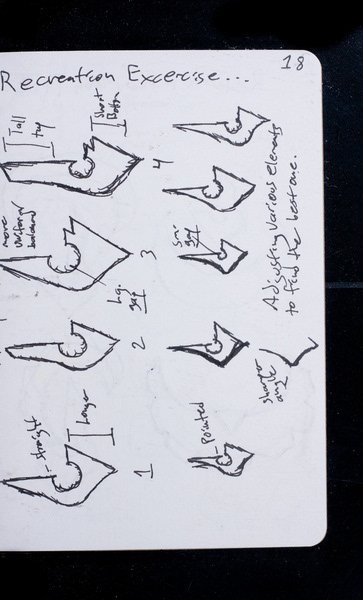 18
Recreation Excercise...
Tall
top
Short
Bottom
4
more
uniform
balanced
3
Lg.
gap
Sm.
gap
2
1
straight
Longer
pointed
sharper
angle
Adjusting various elements
to find the best one.